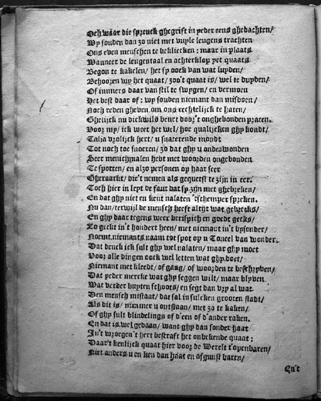 Och waer die spreuck ghegrift in yeder eens ghedachten/
Wy souden dan zo niet met vuyle leugens trachten
Ons even menschen te bekliecken: maer in plaets
Wanneer de leugentaal en achterklap yet quaets
Begon te kakelen/ het sy oock van wat luyden/
Behooren wy het quaet/ zoo't quaet is/ wel te duyden/
Of immers daer van stil te swygen/ en vermoen
Het best daer of: wy souden niemant dan misdoen/
Noch reden gheven om ons rechtelijck te haten/
Ghelijck nu dickwils beurt door't onghebonden praten.
Voor my/ ick weet het wel/ hoe qualijcken ghy kondt/
Valsch vrolijck hert/ u snaterende mondt
Tot noch toe snoeren/ zo dat ghy u onbewonden
Seer menichmalen hebt met woorden ongebonden
Te spotten/ en alzo personen op haer seer
Gheraeckt/ die't nemen als gequetst te zijn in eer.
Toch hier in lept de faut dat sy zijn met ghebreken/
En dat ghy niet en kent nalaten 'tschemper spreken.
Nu dan/ terwijl de mensch heeft altijt wat gebreecks/
En ghy daer tegens weer berispich en goedt geecks/
Zo geckt in't hondert heen/ met niemant in't bysonder/
Noemt niemants naem tot spot op u Toneel van wonder.
Dat deuck ick sult ghy wel nalaten/ maer ghy moet
Voor alle dingen oock wel letten wat ghy doet/
Niemant met kleed/ of gang/ of woorden te beschryven/
Dat yeder mercke wat ghy seggen wilt/ maer blyven
Wat verder buyten schoots/ en segt dan vry al wat
Den mensch misstaet/ dat sal in sulcken grooten stadt/
Als dit is/ nimmer u ontstaen/ met zo te raken/
Of ghy sult blindelings of d'een of d'ander raken.
En dat is wel gedaen/ want ghy dan sonder haet
In't vroegen't hert bestraft het onbekende quaet;
Daar't kenlijck quaet hier voor de Werelt t'openbaren/
Niet anders u en ken dan haet en afgunst baren/
En't